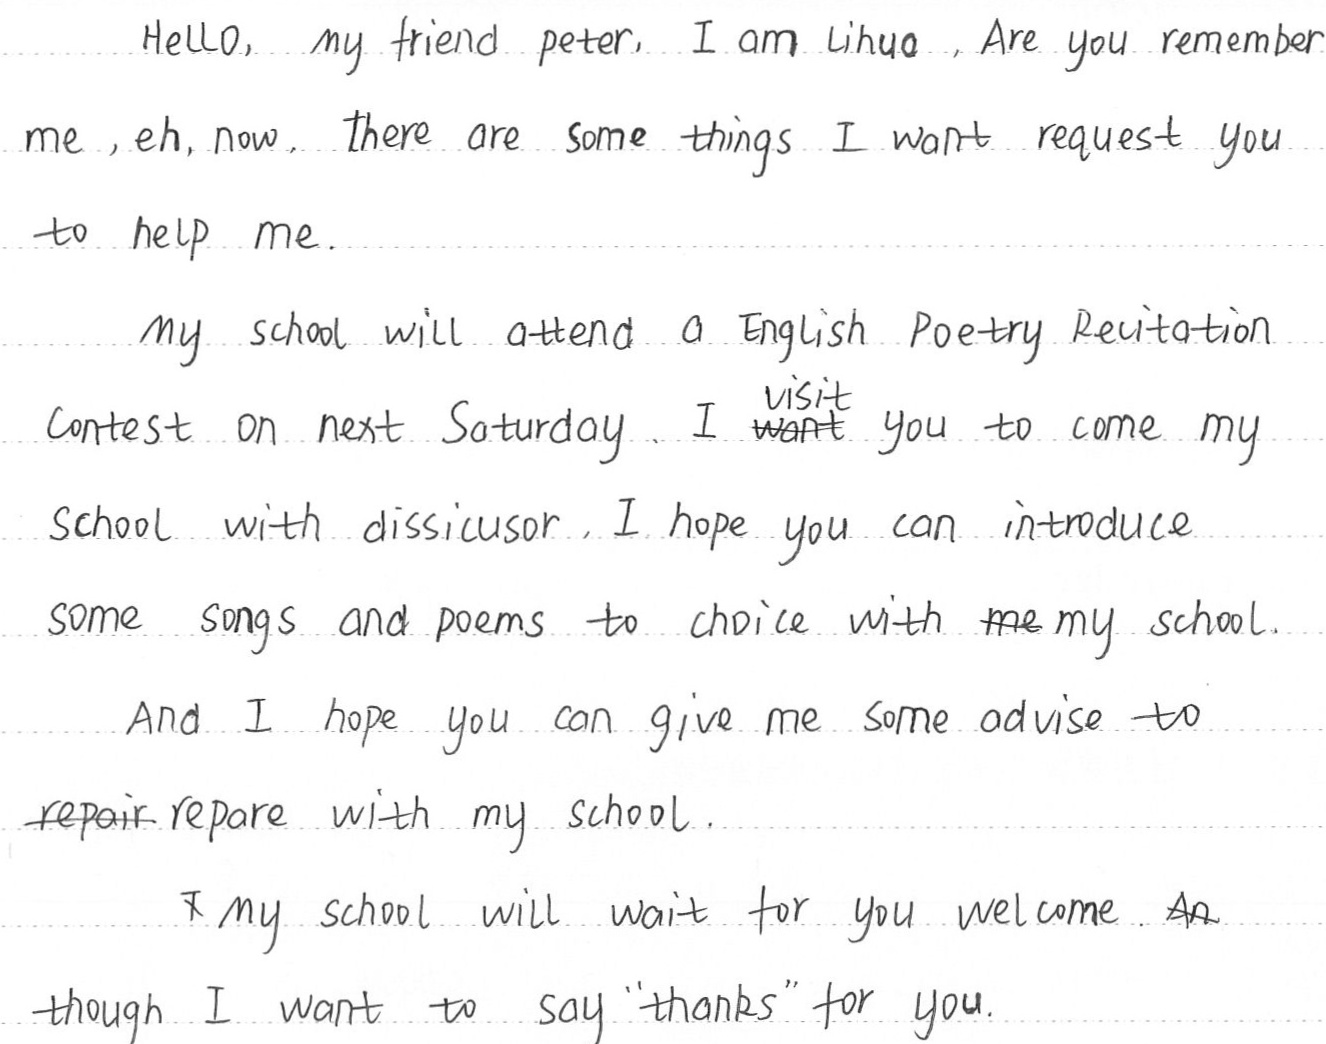 Hello, my friend peter, I am Lihua, Are you remember
me, eh, now, there are some things I want request you
to help me.
My school will attend a English Poetry Recitation
Contest on next Saturday. I visit want you to come my
school with dissicusor, I hope you can introduce
some songs and poems to choice with me my school.
And I hope you can give me some advise to
repair repare with my school.
I My school will wait for you welcome. An
though I want to say "thanks" for you.